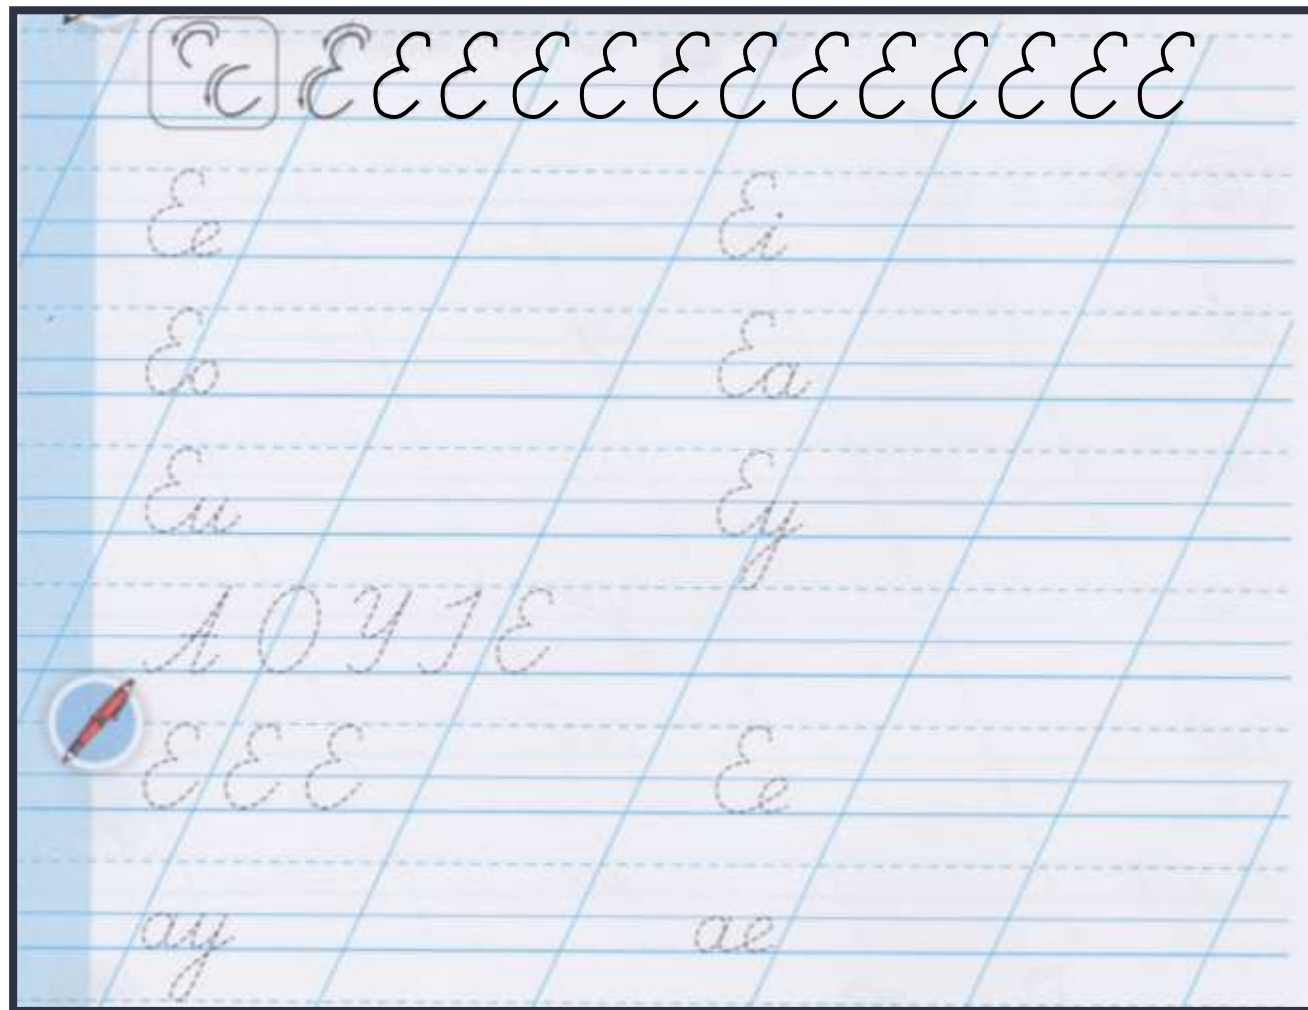 Е Е Е Е Е Е Е Е Е Е Е Е Е
Ее Еі
Ео Еа
Еи Еу
А О У І Е
Е Е Е Ее
ау ае